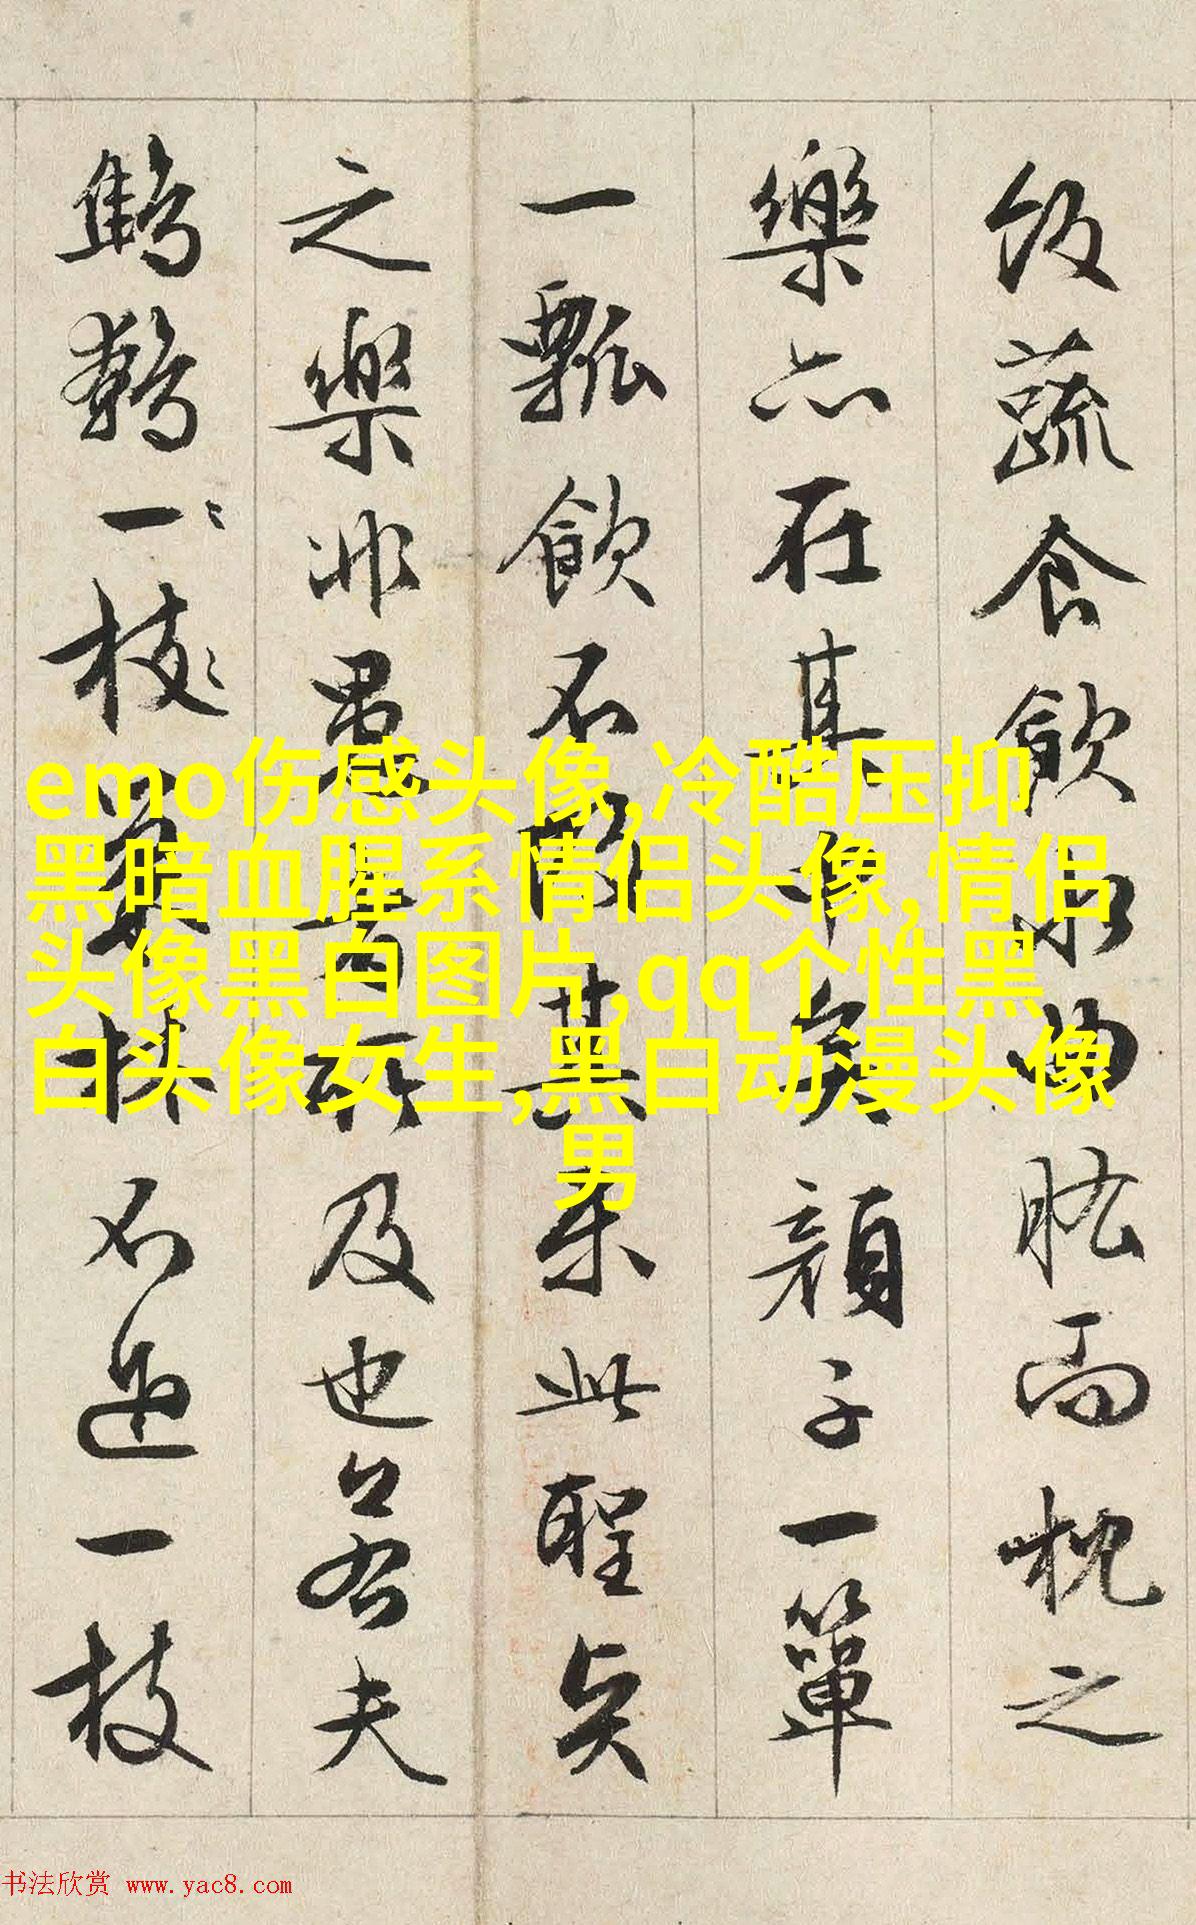 飯蔬食飲水曲肱而枕之
樂亦在其中矣顏子一簞
一瓢飲不改其樂此聖賢
之樂非愚者所及也若夫
鷦鷯一枝巢林不過一枝
emo伤感头像,冷酷压抑
黑暗血腥系情侣头像,情侣
头像黑白图片,qq个性黑
白头像女生,黑白动漫头像
男
书法欣赏 www.yac8.com